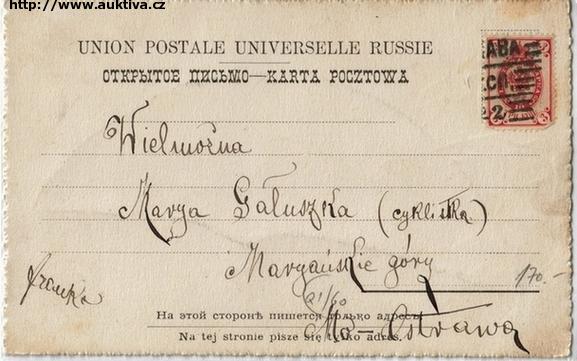 http://www.auktiva.cz
UNION POSTALE UNIVERSELLE RUSSIE
ОТКРЫТОЕ ПИСЬМО—KARTA POCZTOWA
ABA
2
Wielmożna
Marya Gałuszka (cyklistka)
Maryańskie góry
170.-
franka
21/60
На этой сторонѣ пишется только адресъ.
Mo-Ostrawa
Na tej stronie pisze się tylko adres.